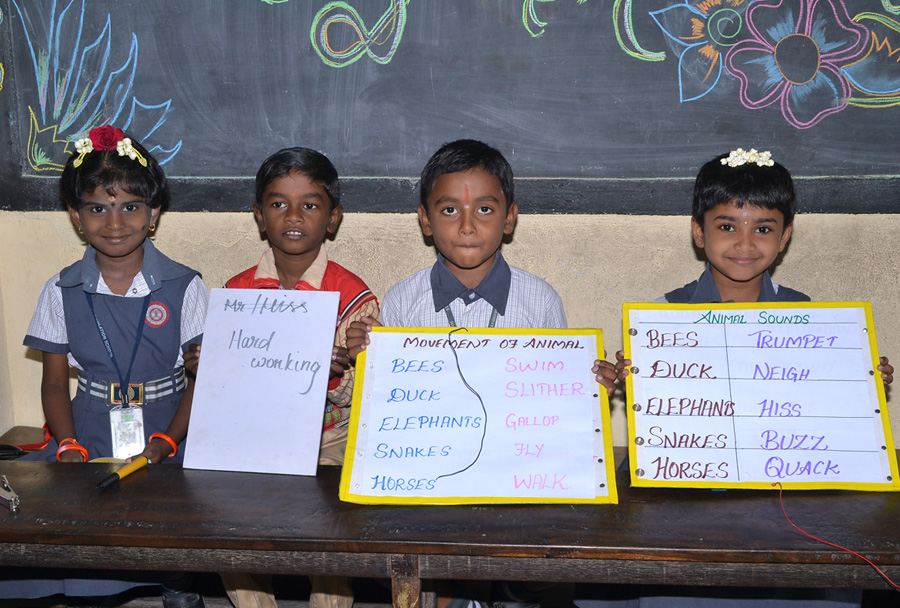 Mr/Miss
Hard
working
MOVEMENT OF ANIMAL
BEES SWIM
DUCK SLITHER
ELEPHANTS GALLOP
SNAKES FLY
HORSES WALK
ANIMAL SOUNDS
BEES TRUMPET
DUCK NEIGH
ELEPHANTS HISS
SNAKES BUZZ
HORSES QUACK